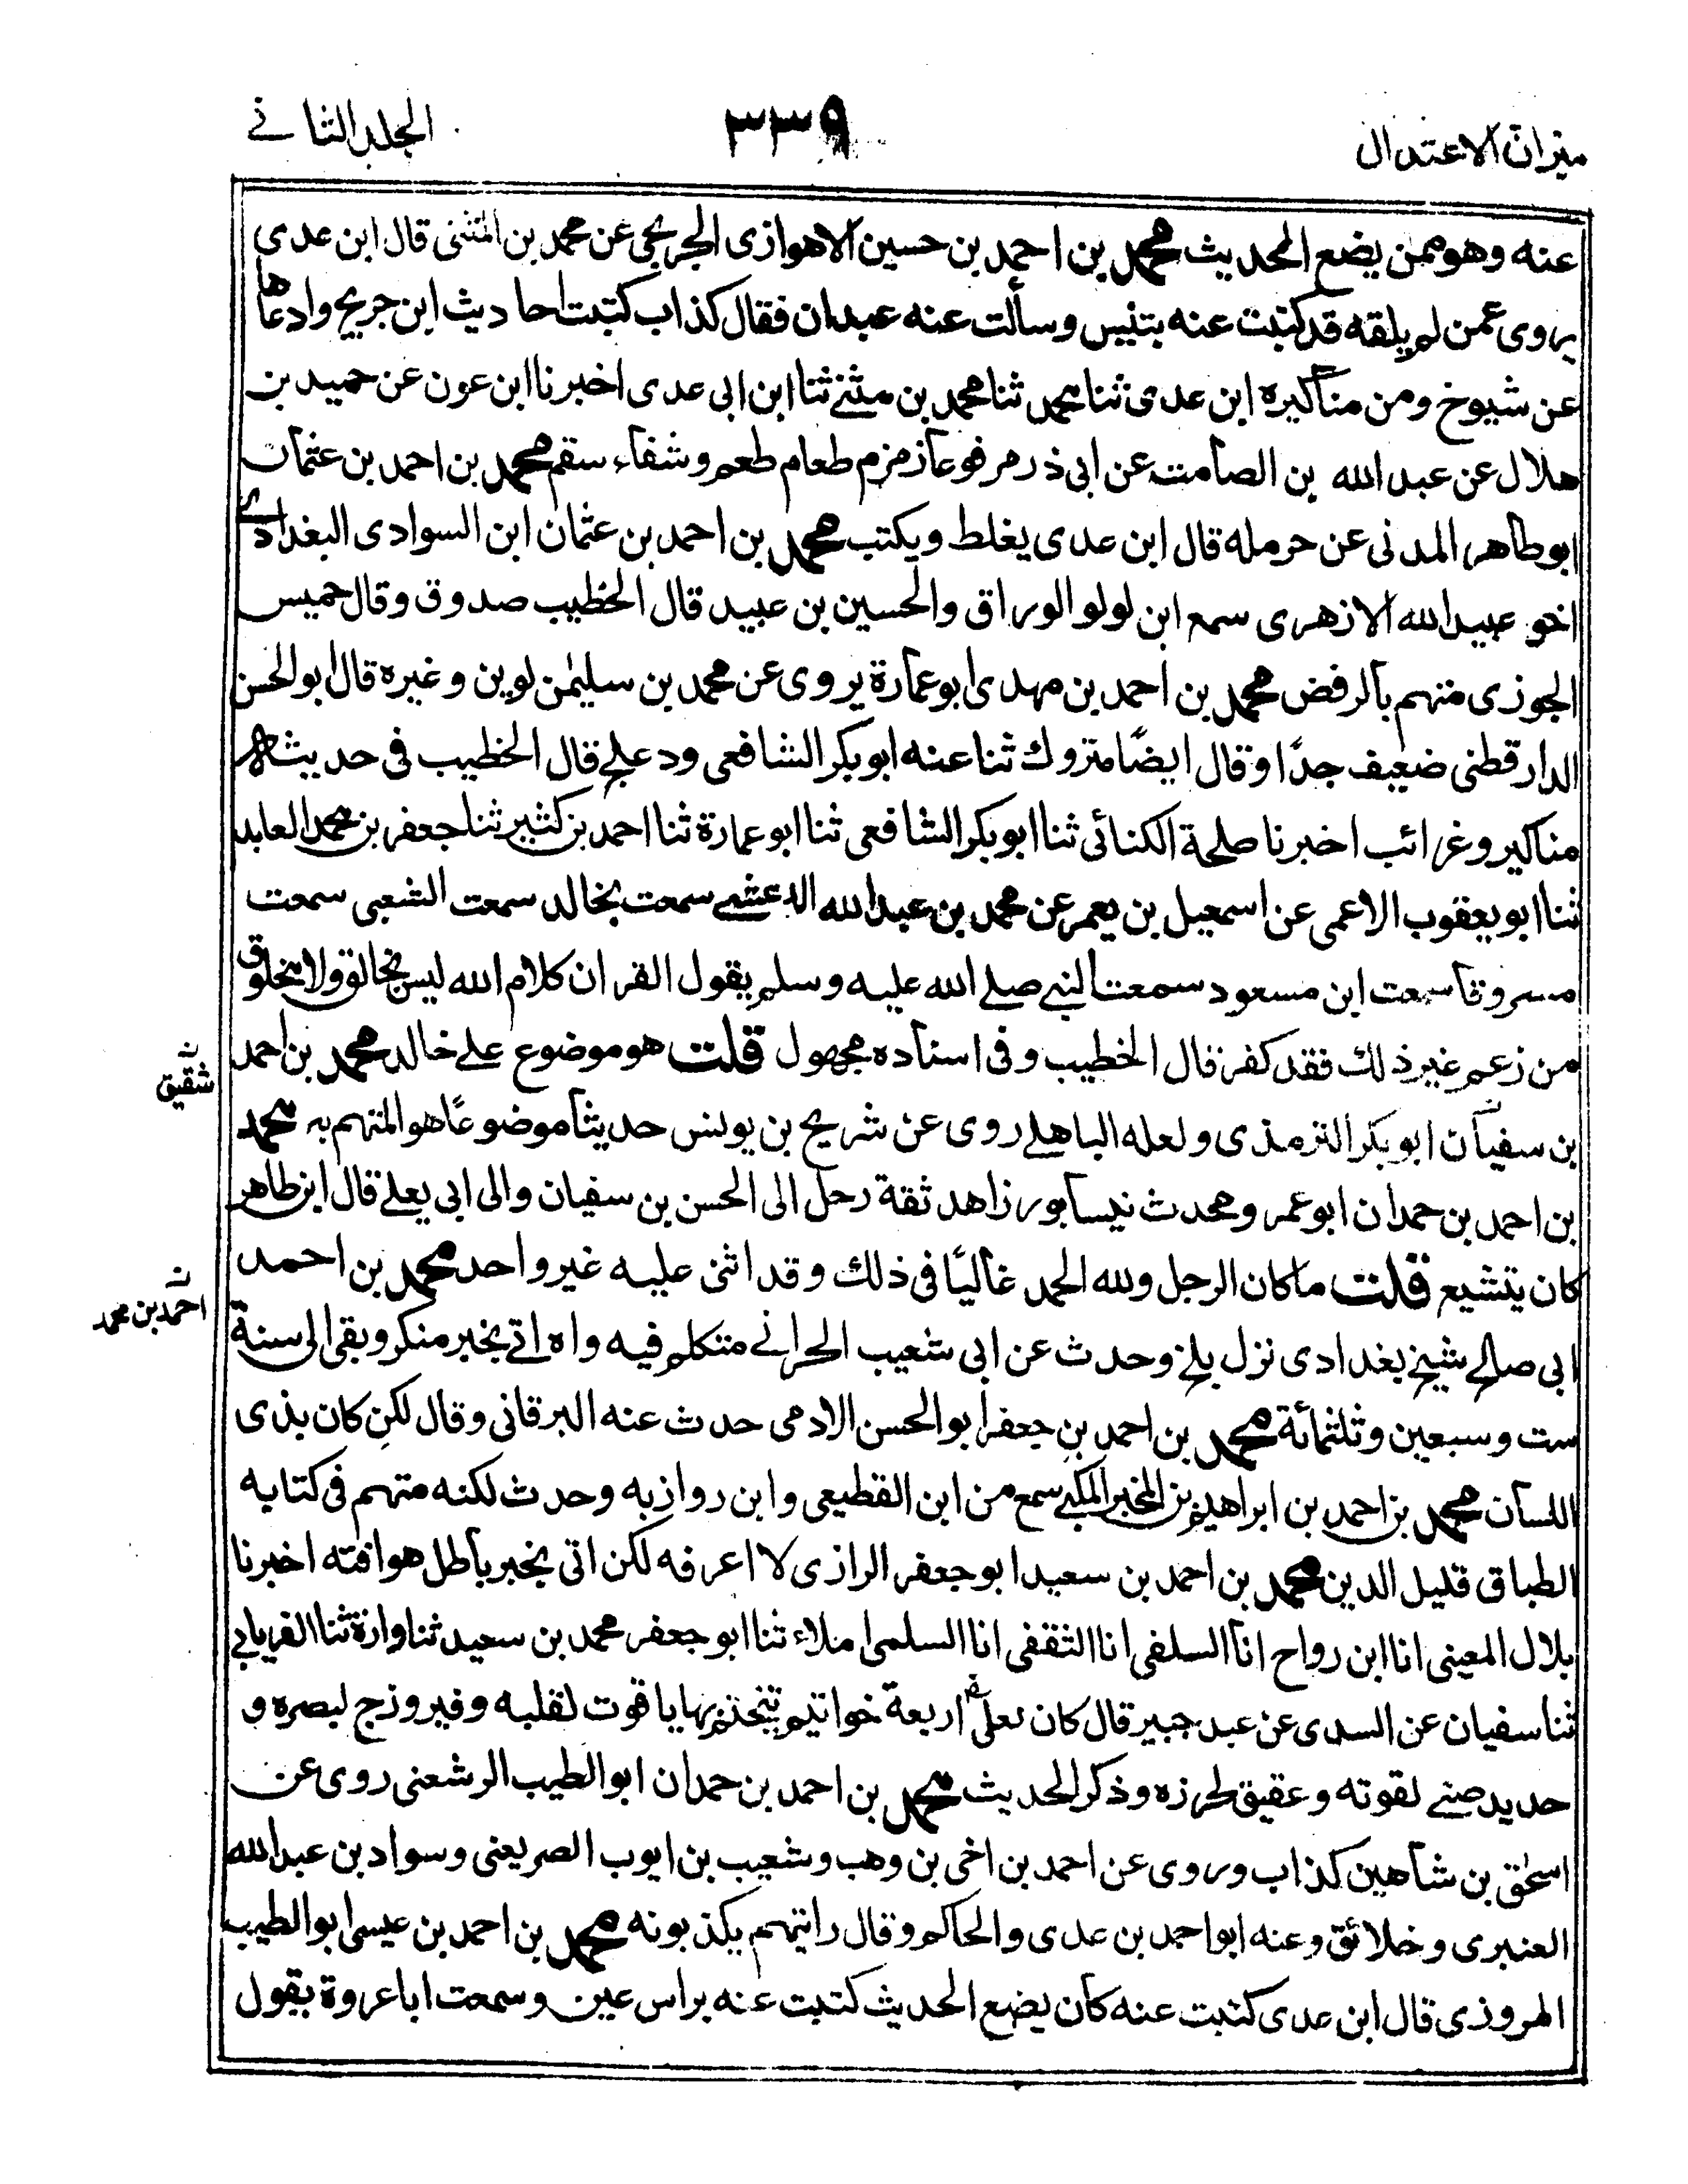 ميزان الاعتدال
٣٣٩
الجلد الثاني
عنه وهو ممن يضع الحديث محمد بن احمد بن حسين الاهوازى الجريجى عن محمد بن المثنى قال ابن عدى
يروى عمن لم يلقه قد كتبت عنه بتنيس وسألت عنه عبدان فقال كذاب كتبت احاديث ابن جريج وادعاها
عن شيوخ ومن مناكيره ابن عدى ثنا محمد ثنا محمد بن مثنے ثنا ابن ابى عدى اخبرنا ابن عون عن حميد بن
هلال عن عبد الله بن الصامت عن ابى ذر مرفوعا زمزم طعام طعم وشفاء سقم محمد بن احمد بن عثمان
ابو طاهر المدنى عن حرمله قال ابن عدى يغلط ويكتب محمد بن احمد بن عثمان ابن السوادى البغدادے
اخو عبيد الله الازهرى سمع ابن لولو الوراق والحسين بن عبيد قال الخطيب صدوق وقال خميس
الجوزى متهم بالرفض محمد بن احمد بن مهدى ابو عمارة يروى عن محمد بن سليمٰن لوين وغيره قال ابو الحسن
الدارقطنى ضعيف جدًا وقال ايضًا متروك ثنا عنه ابو بكر الشافعى ودعلج قال الخطيب فى حديثه
مناكير وغرائب اخبرنا طلحة الكنائى ثنا ابو بكر الشافعى ثنا ابو عمارة ثنا احمد بن كثير ثنا جعفر بن محمد العابد
ثنا ابو يعقوب الاعمى عن اسمعيل بن يعمر عن محمد بن عبد الله الدعشے سمعت بخالد سمعت الشعبى سمعت
مسروقا سمعت ابن مسعود سمعت النبے صلے الله عليه وسلم يقول القران كلام الله ليس بخالق ولا بمخلوق
من زعم غير ذلك فقد كفر قال الخطيب وفى اسناده مجهول قلت هو موضوع علے خالد محمد بن احمد
بن سفيان ابو بكر الترمذى ولعله الباهلے روى عن شريح بن يونس حديثا موضوعًا هو المتهم به محمد
بن احمد بن حمدان ابو عمر ومحدث نيسابور زاهد ثقة رحل الى الحسن بن سفيان والى ابى يعلے قال ابن طاهر
كان يتشيع قلت ما كان الرجل ولله الحمد غاليًا فى ذلك وقد اثنى عليه غير واحد محمد بن احمد
ابى صالح شيخ بغدادى نزل بلخ وحدث عن ابى شعيب الحرانے متكلم فيه واه اتے بخبر منكر وبقى الى سنة
ست وسبعين وثلثمائة محمد بن احمد بن جعفر ابو الحسن الادمى حدث عنه البرقانى وقال لكن كان بذى
اللسان محمد بن احمد بن ابراهيم بن المخبر المكبے سمع من ابن القطيعى وابن روازبه وحدث لكنه متهم فى كتابه
الطباق قليل الدين محمد بن احمد بن سعيد ابو جعفر الرازى لا اعرفه لكن اتى بخبر باطل هو افته اخبرنا
بلال المعينى انا ابن رواح انا السلفى انا الثقفى انا السلمى املاء ثنا ابو جعفر محمد بن سعيد ثنا وارة ثنا الفريابے
ثنا سفيان عن السدى عن عبد جبير قال كان لعلى اربعة خواتيم يتختم بها ياقوت لقلبه وفيروزج لبصره و
حديد صنے لقوته وعقيق لحرزه وذكر الحديث محمد بن احمد بن حمدان ابو الطيب الرشعنى روى عن
اسحٰق بن شاهين كذاب وروى عن احمد بن اخى بن وهب وشعيب بن ايوب الصريعنى وسواد بن عبد الله
العنبرى وخلائق وعنه ابو احمد بن عدى والحاكم وقال رايتهم يكذبونه محمد بن احمد بن عيسى ابو الطيب
المروزى قال ابن عدى كتبت عنه كان يضع الحديث كتبت عنه براس عين وسمعت ابا عروة يقول
شقيق
احمد بن محمد